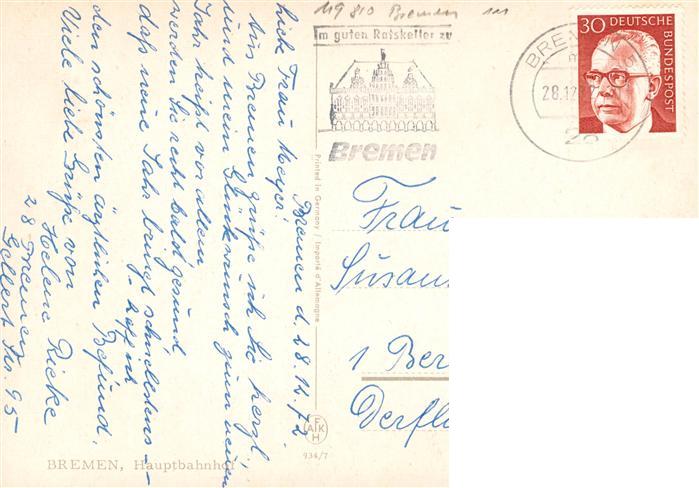 119 810 Bremen
Im guten Ratskeller zu
Bremen
BREMEN 5
28.12.72
28
30 DEUTSCHE
BUNDESPOST
Bremen d. 28.12.72
Liebe Frau Meyer!
Aus Bremen grüße ich Sie herzl.,
und mein Glückwunsch zum neuen
Jahr heißt vor allem
werden Sie recht bald gesund
daß neue Jahr bringt schnellstens –
hoffentl.
den schönsten ärztlichen Befund.
Viele liebe Grüße von
Helene Rieke
28 Bremen
Gellert Str. 95
Printed in Germany / Importé d'Allemagne
Frau
Susan
1 Ber
Derfl
AKH
934/7
BREMEN, Hauptbahnhof